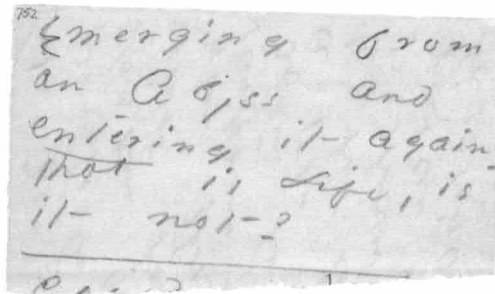 752
Emerging from
an Abyss and
entering it again
that is Life, is
it not?